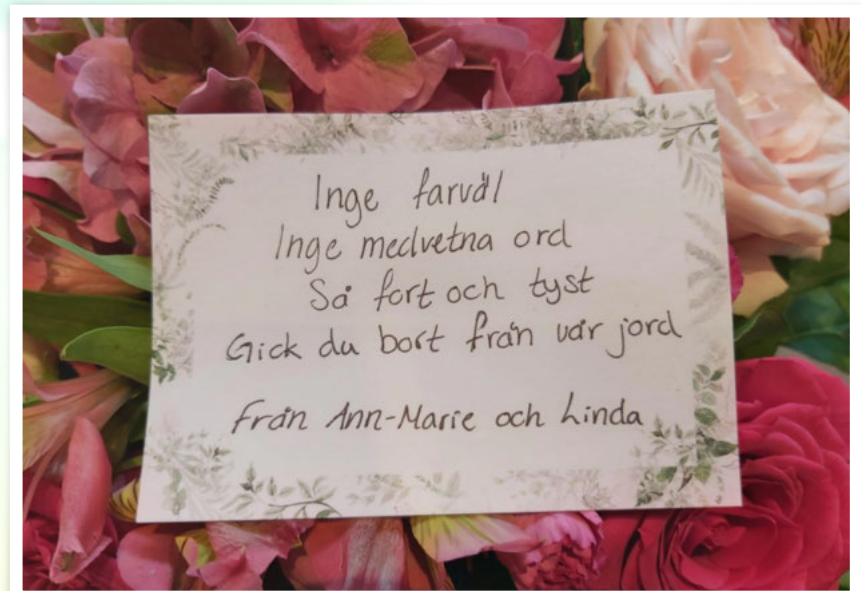 Inge farväl
Inge medvetna ord
Så fort och tyst
Gick du bort från vår jord
Från Ann-Marie och Linda